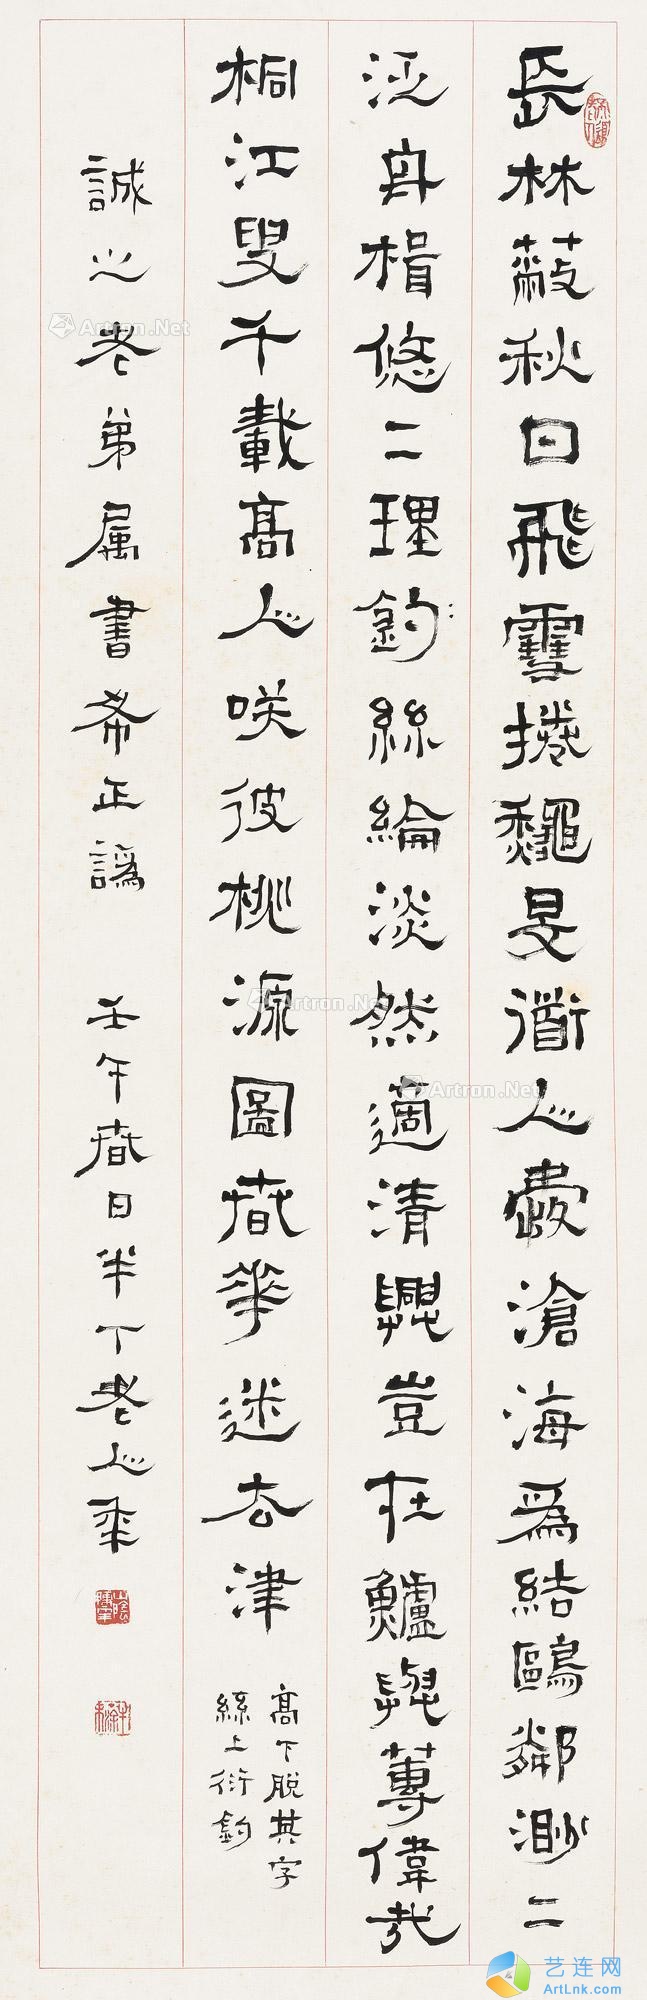 長林蔽秋日飛雪擁黐是衜人處滄海為結鷗鄰渺二
泛舟楫悠二理鈞絲綸淡然適清興豈在鱸與蓴偉哉
桐江叟千載高人咲彼桃源圖春華迷去津
高下脱其字
絲上衍鈞
誠之老弟属書希正譌
壬午春日半丁老人年
Artron.Net
Artron.Net
Artron.Net
艺连网
ArtLnk.com